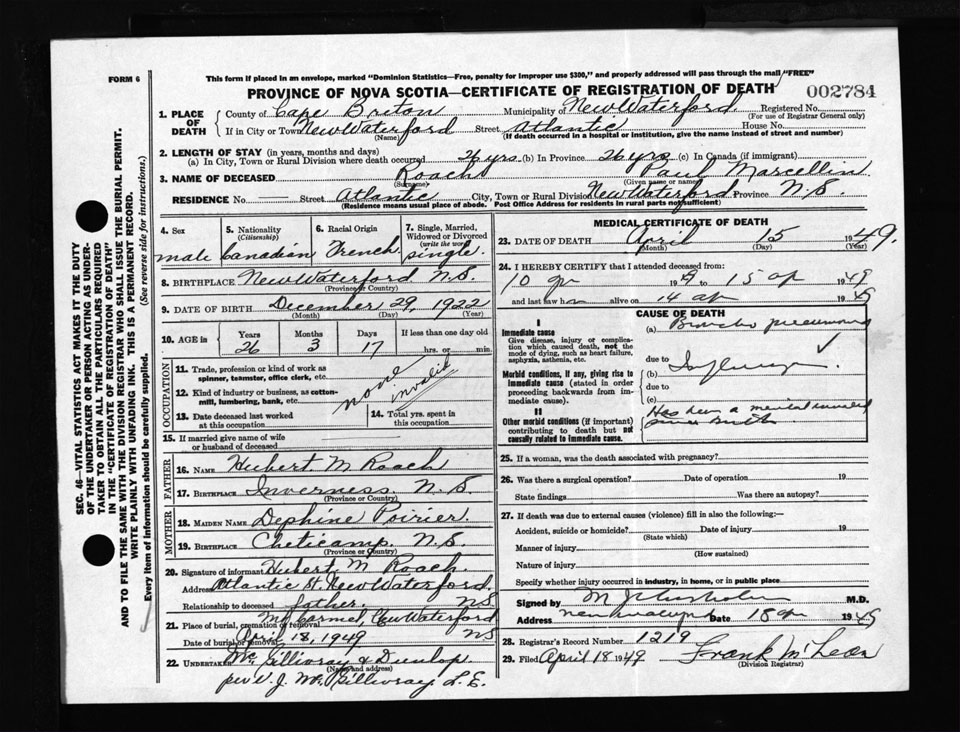 FORM 6
This form if placed in an envelope, marked "Dominion Statistics—Free, penalty for improper use $300," and properly addressed will pass through the mail "FREE"
PROVINCE OF NOVA SCOTIA—CERTIFICATE OF REGISTRATION OF DEATH
002784
1. PLACE OF DEATH
County of Cape Breton Municipality of New Waterford. Registered No.
(For use of Registrar General only)
If in City or Town New Waterford Street Atlantic House No.
(Name) (If death occurred in a hospital or institution, give the name instead of street and number)
2. LENGTH OF STAY (in years, months and days)
(a) In City, Town or Rural Division where death occurred 26 yrs. (b) In Province 26 yrs (c) In Canada (if immigrant)
3. NAME OF DECEASED Roach Paul Marcellin
(Surname) (Given name or names)
RESIDENCE No. — Street Atlantic City, Town or Rural Division New Waterford Province N.S.
(Residence means usual place of abode. Post Office Address for residents in rural parts not sufficient)
4. Sex
male
5. Nationality
(Citizenship)
Canadian
6. Racial Origin
French
7. Single, Married, Widowed or Divorced
(write the word)
single.
8. BIRTHPLACE New Waterford N.S.
(Province or Country)
9. DATE OF BIRTH December 29, 1922
(Month) (Day) (Year)
10. AGE in
Years Months Days If less than one day old
26 3 17 hrs. or min.
OCCUPATION
11. Trade, profession or kind of work as spinner, teamster, office clerk, etc.
12. Kind of industry or business, as cotton-mill, lumbering, bank, etc.
none
invalid
13. Date deceased last worked at this occupation
14. Total yrs. spent in this occupation
15. If married give name of wife or husband of deceased
FATHER
16. NAME Hubert M Roach
17. BIRTHPLACE Inverness N.S.
(Province or Country)
MOTHER
18. MAIDEN NAME Dephine Poirier.
19. BIRTHPLACE Cheticamp. N.S.
(Province or Country)
20. Signature of informant Hubert M Roach.
Address Atlantic St. New Waterford.
Relationship to deceased father. NS
21. Place of burial, cremation or removal Mt Carmel, New Waterford
Date of burial or removal April 18, 1949 NS
22. UNDERTAKER McGillivray & Dunlop.
(Name and address)
per J. McGillivray, L.E.
MEDICAL CERTIFICATE OF DEATH
23. DATE OF DEATH April 15 1949.
(Month) (Day) (Year)
24. I HEREBY CERTIFY that I attended deceased from:
10 ap 1949 to 15 ap 1949
and last saw him alive on 14 ap 1949
CAUSE OF DEATH
I
Immediate cause
Give disease, injury or complication which caused death, not the mode of dying, such as heart failure, asphyxia, asthenia, etc.
(a) Broncho pneumonia
due to
Morbid conditions, if any, giving rise to immediate cause (stated in order proceeding backwards from immediate cause).
(b) Influenza
due to
(c)
II
Other morbid conditions (if important) contributing to death but not causally related to immediate cause.
Has been a mental invalid
since Birth
25. If a woman, was the death associated with pregnancy?
26. Was there a surgical operation? Date of operation 19
State findings Was there an autopsy?
27. If death was due to external causes (violence) fill in also the following:—
Accident, suicide or homicide? Date of injury 19
(State which)
Manner of injury
(How sustained)
Nature of injury
Specify whether injury occurred in industry, in home, or in public place
Signed by M.D.
Address Date 18 ap 1949
28. Registrar's Record Number 1219
29. Filed April 18 1949 Frank McLean
(Division Registrar)
SEC. 46—VITAL STATISTICS ACT MAKES IT THE DUTY
OF THE UNDERTAKER OR PERSON ACTING AS UNDER-
TAKER TO OBTAIN ALL THE PARTICULARS REQUIRED
IN THE "CERTIFICATE OF REGISTRATION OF DEATH"
AND TO FILE THE SAME WITH THE DIVISION REGISTRAR WHO SHALL ISSUE THE BURIAL PERMIT.
WRITE PLAINLY WITH UNFADING INK. THIS IS A PERMANENT RECORD.
Every item of information should be carefully supplied. (See reverse side for instructions.)